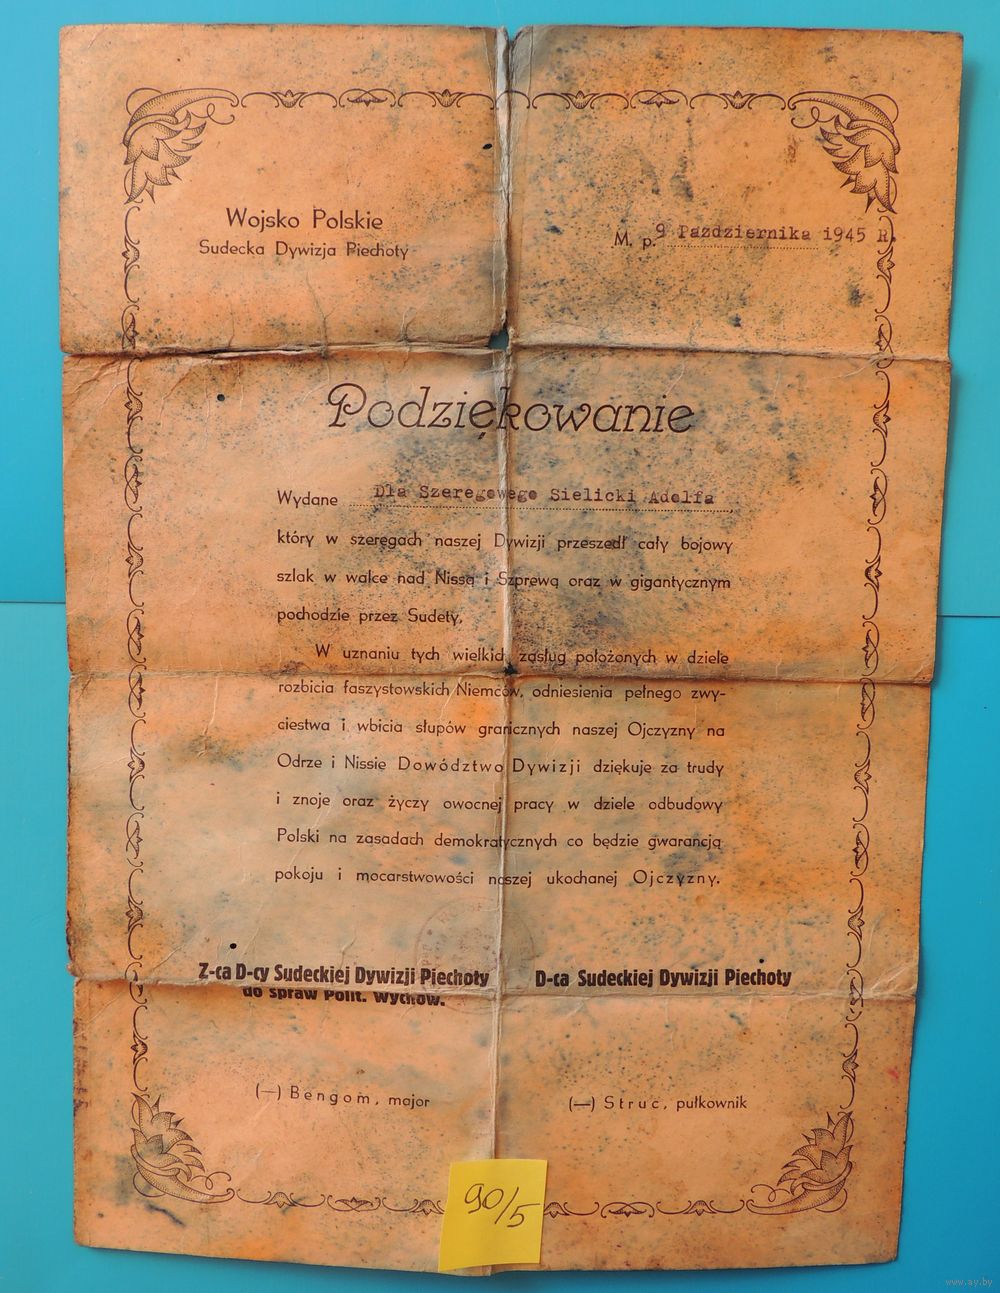 Wojsko Polskie
Sudecka Dywizja Piechoty
M. p. 9 Pazdziernika 1945 R.
Podziękowanie
Wydane Dla Szeregowego Sielicki Adolfa
który w szeregach naszej Dywizji przeszedł cały bojowy
szlak w walce nad Nissą i Szprewą oraz w gigantycznym
pochodzie przez Sudety.
W uznaniu tych wielkich zasług położonych w dziele
rozbicia faszystowskich Niemców, odniesienia pełnego zwy-
ciestwa i wbicia słupów granicznych naszej Ojczyzny na
Odrze i Nissie Dowództwo Dywizji dziękuje za trudy
i znoje oraz życzy owocnej pracy w dziele odbudowy
Polski na zasadach demokratycznych co będzie gwarancją
pokoju i mocarstwowości naszej ukochanej Ojczyzny.
Z-ca D-cy Sudeckiej Dywizji Piechoty
do spraw Polit. Wychow.
D-ca Sudeckiej Dywizji Piechoty
(—) Bengom, major
(—) Struc, pułkownik
90/5
www.ay.by